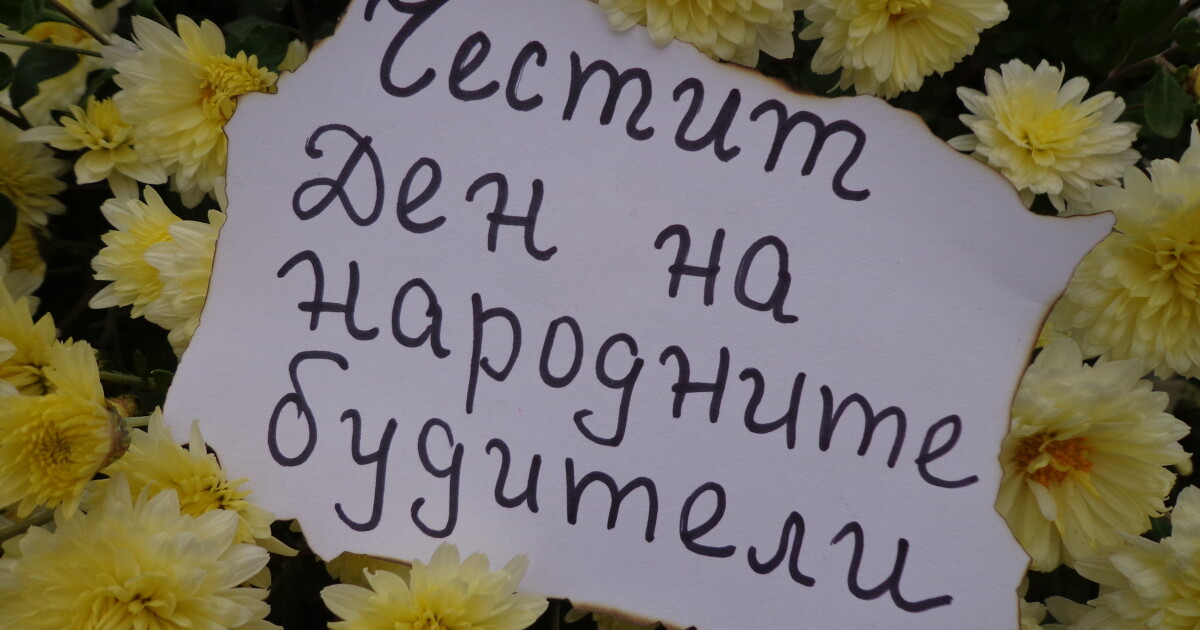 Честит
Ден на
народните
будители